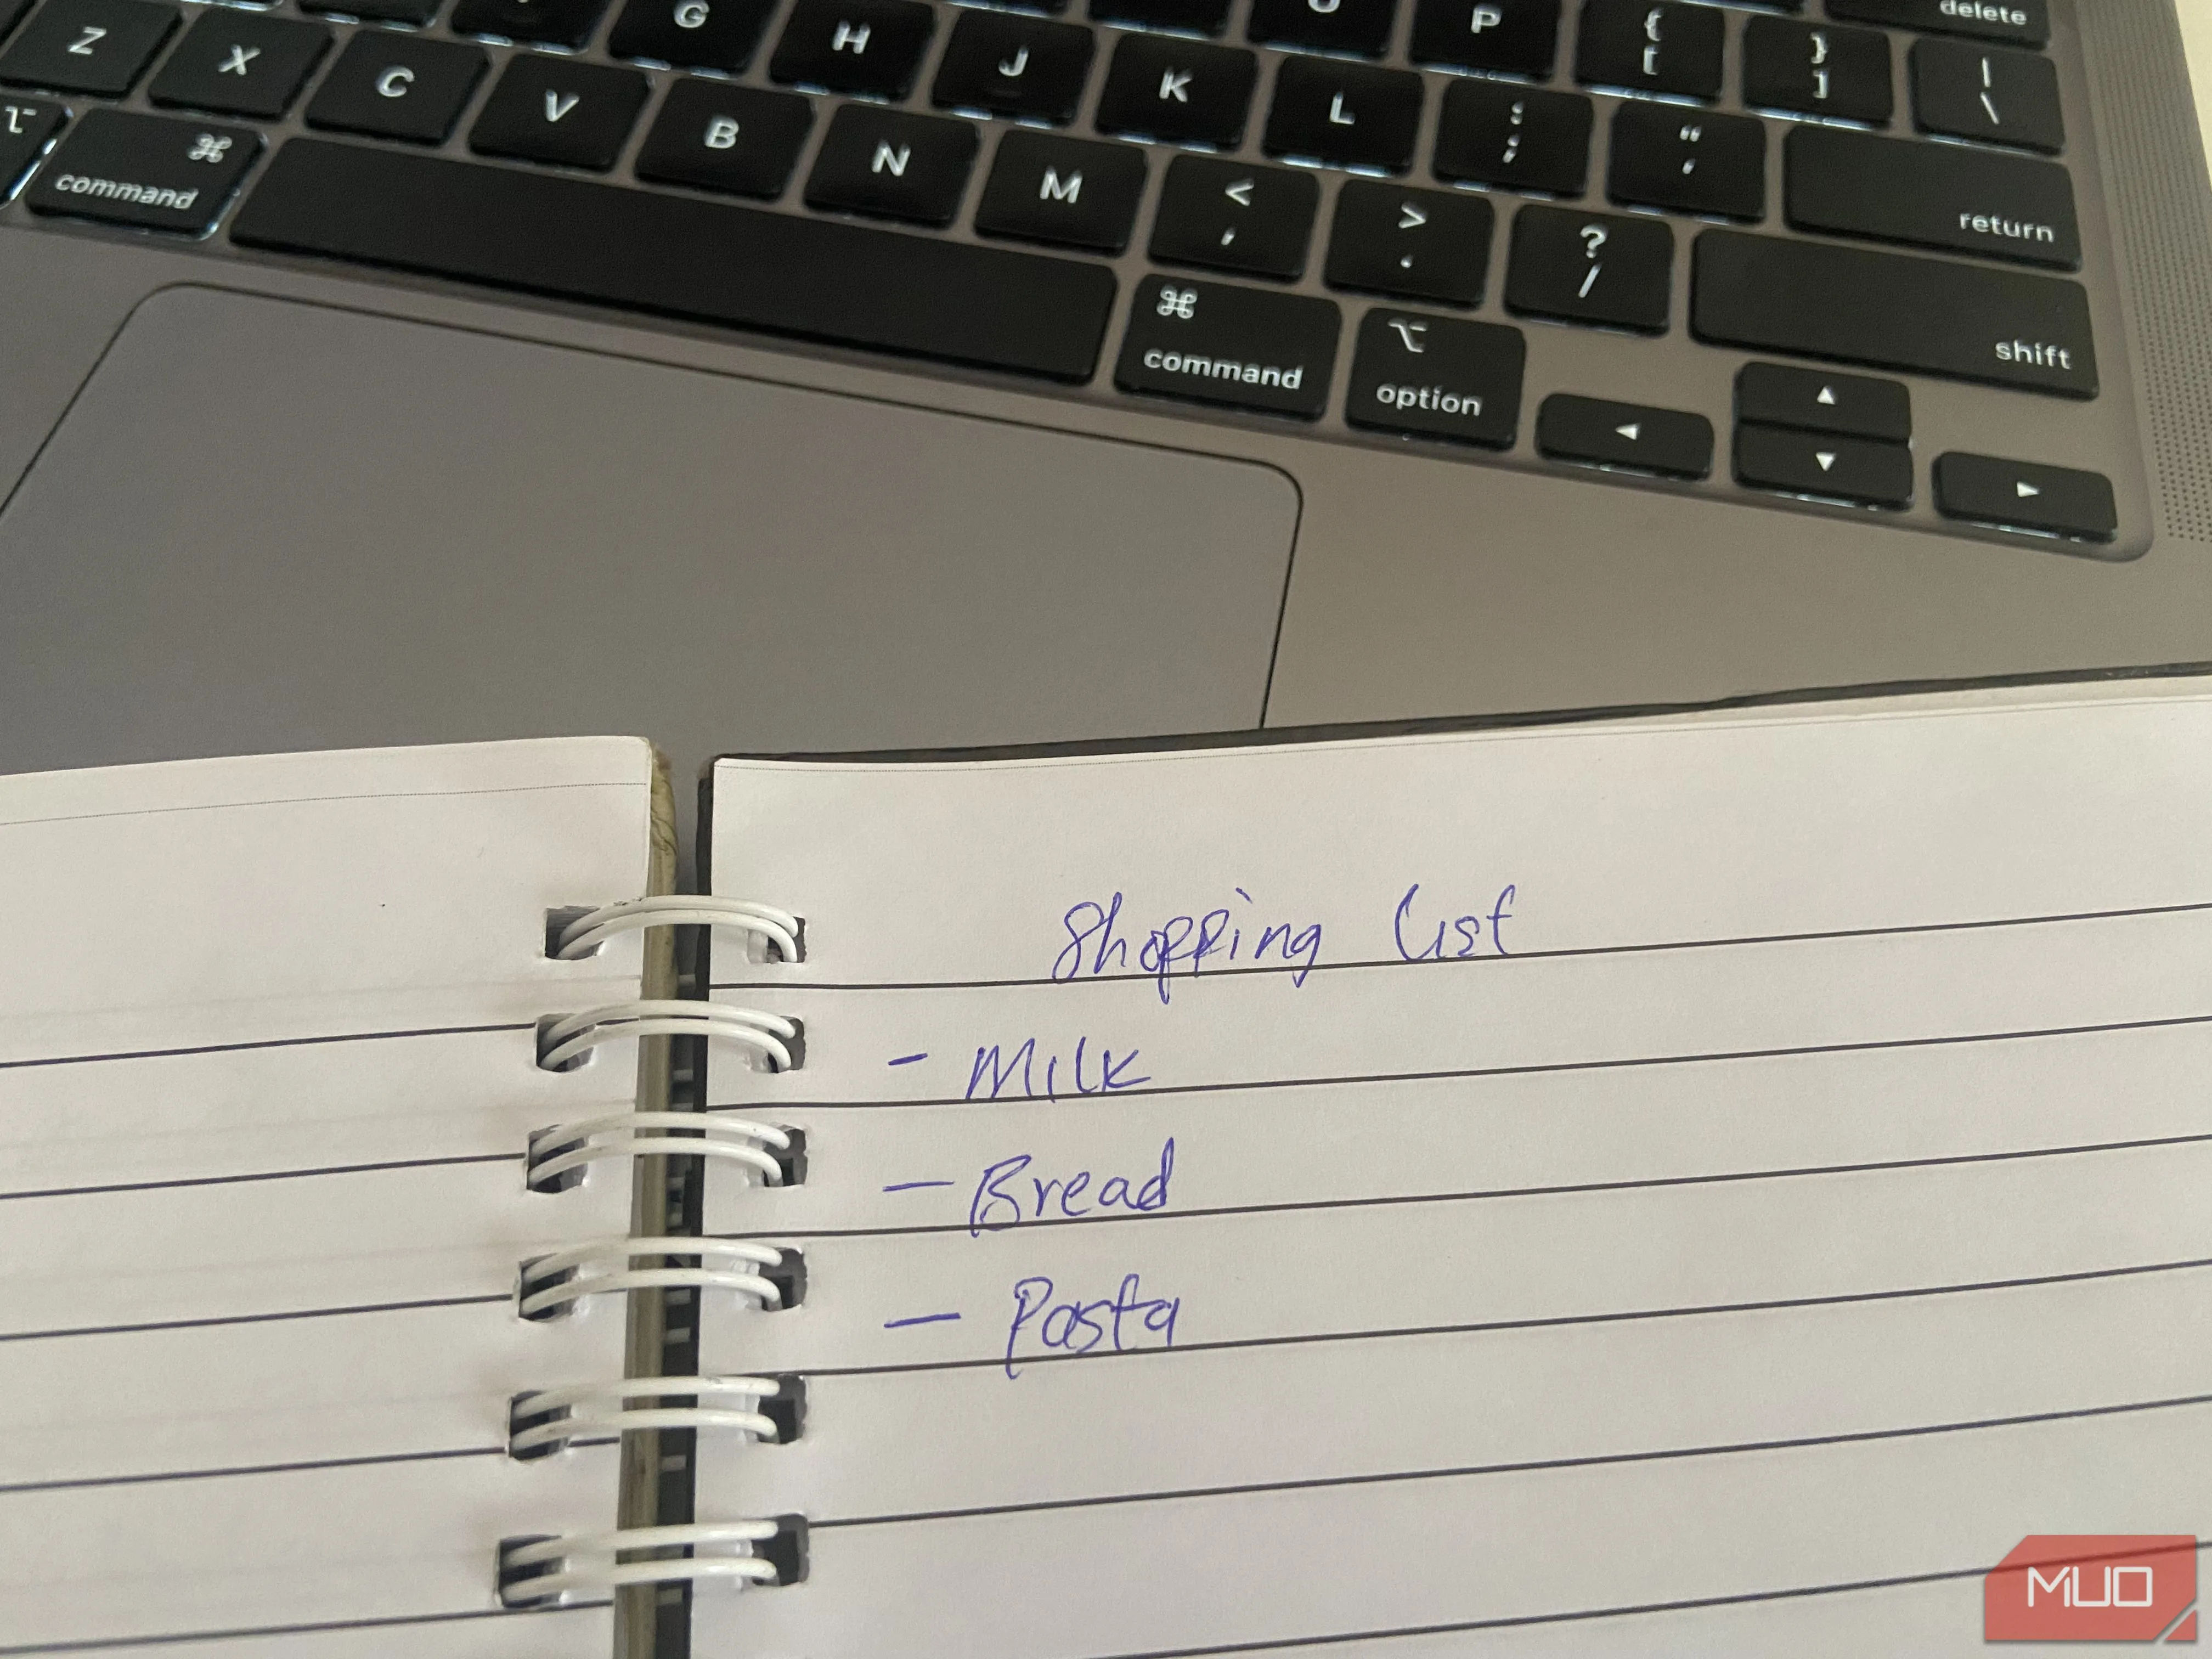 G H J K L O P { [ } ] | \ delete
Z X C V B N M < , > . ? / : ; " ' return
⌥ ⌘ command ⌘ command ⌥ option shift
◀ ▲ ▼ ▶
Shopping list
- Milk
- Bread
- Pasta
MUO